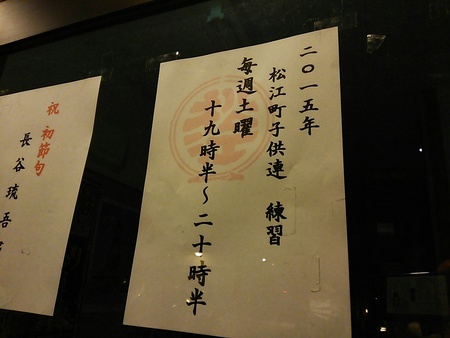 二〇一五年
松江町子供連 練習
毎週土曜
十九時半～二十時半
祝 初節句
長谷琉吾